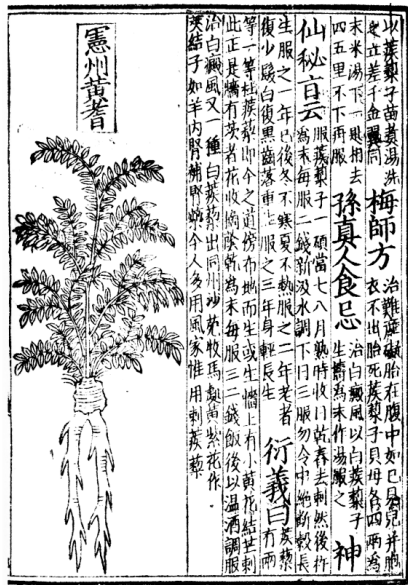 以蒺藜子苗煮湯洗之立差千金翼同 梅師方 治難產礙胎在腹中如已見兒并胞
衣不出胎死蒺藜子貝母各四兩為
末米湯下一匙相去四五里不下再服 孫真人食忌 治白癜風以白蒺藜子
生擣為末作湯服之 神
仙秘旨云 服蒺藜子一碩當七八月熟時收日乾舂去刺然後杵
為末每服二錢新汲水調下日三服勿令中絕斷穀長
生服之一年已後冬不寒夏不熱服之二年老者
復少髮白復黑齒落重生服之三年身輕長生 衍義曰 蒺藜有兩
等一等杜蒺藜即今之道傍布地而生或生牆上有小黃花結芒刺
此正是牆有茨者花收摘蔭乾為末每服三二錢飯後以温酒調服
治白癜風又一種白蒺藜出同州沙苑牧馬處黃紫花作
莢結子如羊內腎補腎藥今人多用風家惟用刺蒺藜
憲州黃耆